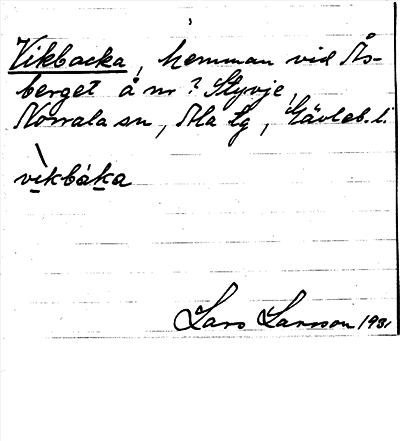 Vikbacka, hemman vid Ås-
berget å nr ? Styvje,
Norrala sn, Ala tg, Gävleb. l.
vìkbáka
Lars Larsson 1931